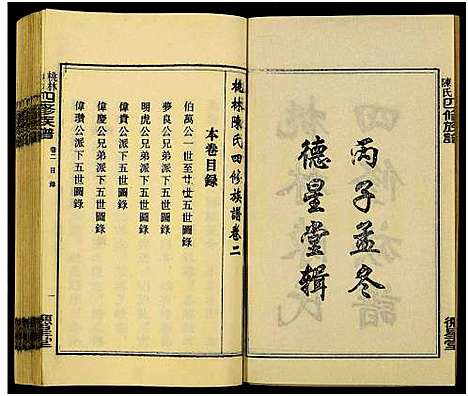 陳氏四修族譜
丙子孟冬
德星堂辑
德星堂
桃林陳氏四修族譜卷二
本卷目録
伯萬公一世至廿世五世圖錄
夢良公兄弟派下五世圖錄
明虎公兄弟派下五世圖錄
偉貴公派下五世圖錄
偉慶公兄弟派下五世圖錄
偉瓚公派下五世圖錄
桃林
四修族譜
卷二 目錄
一
德星堂